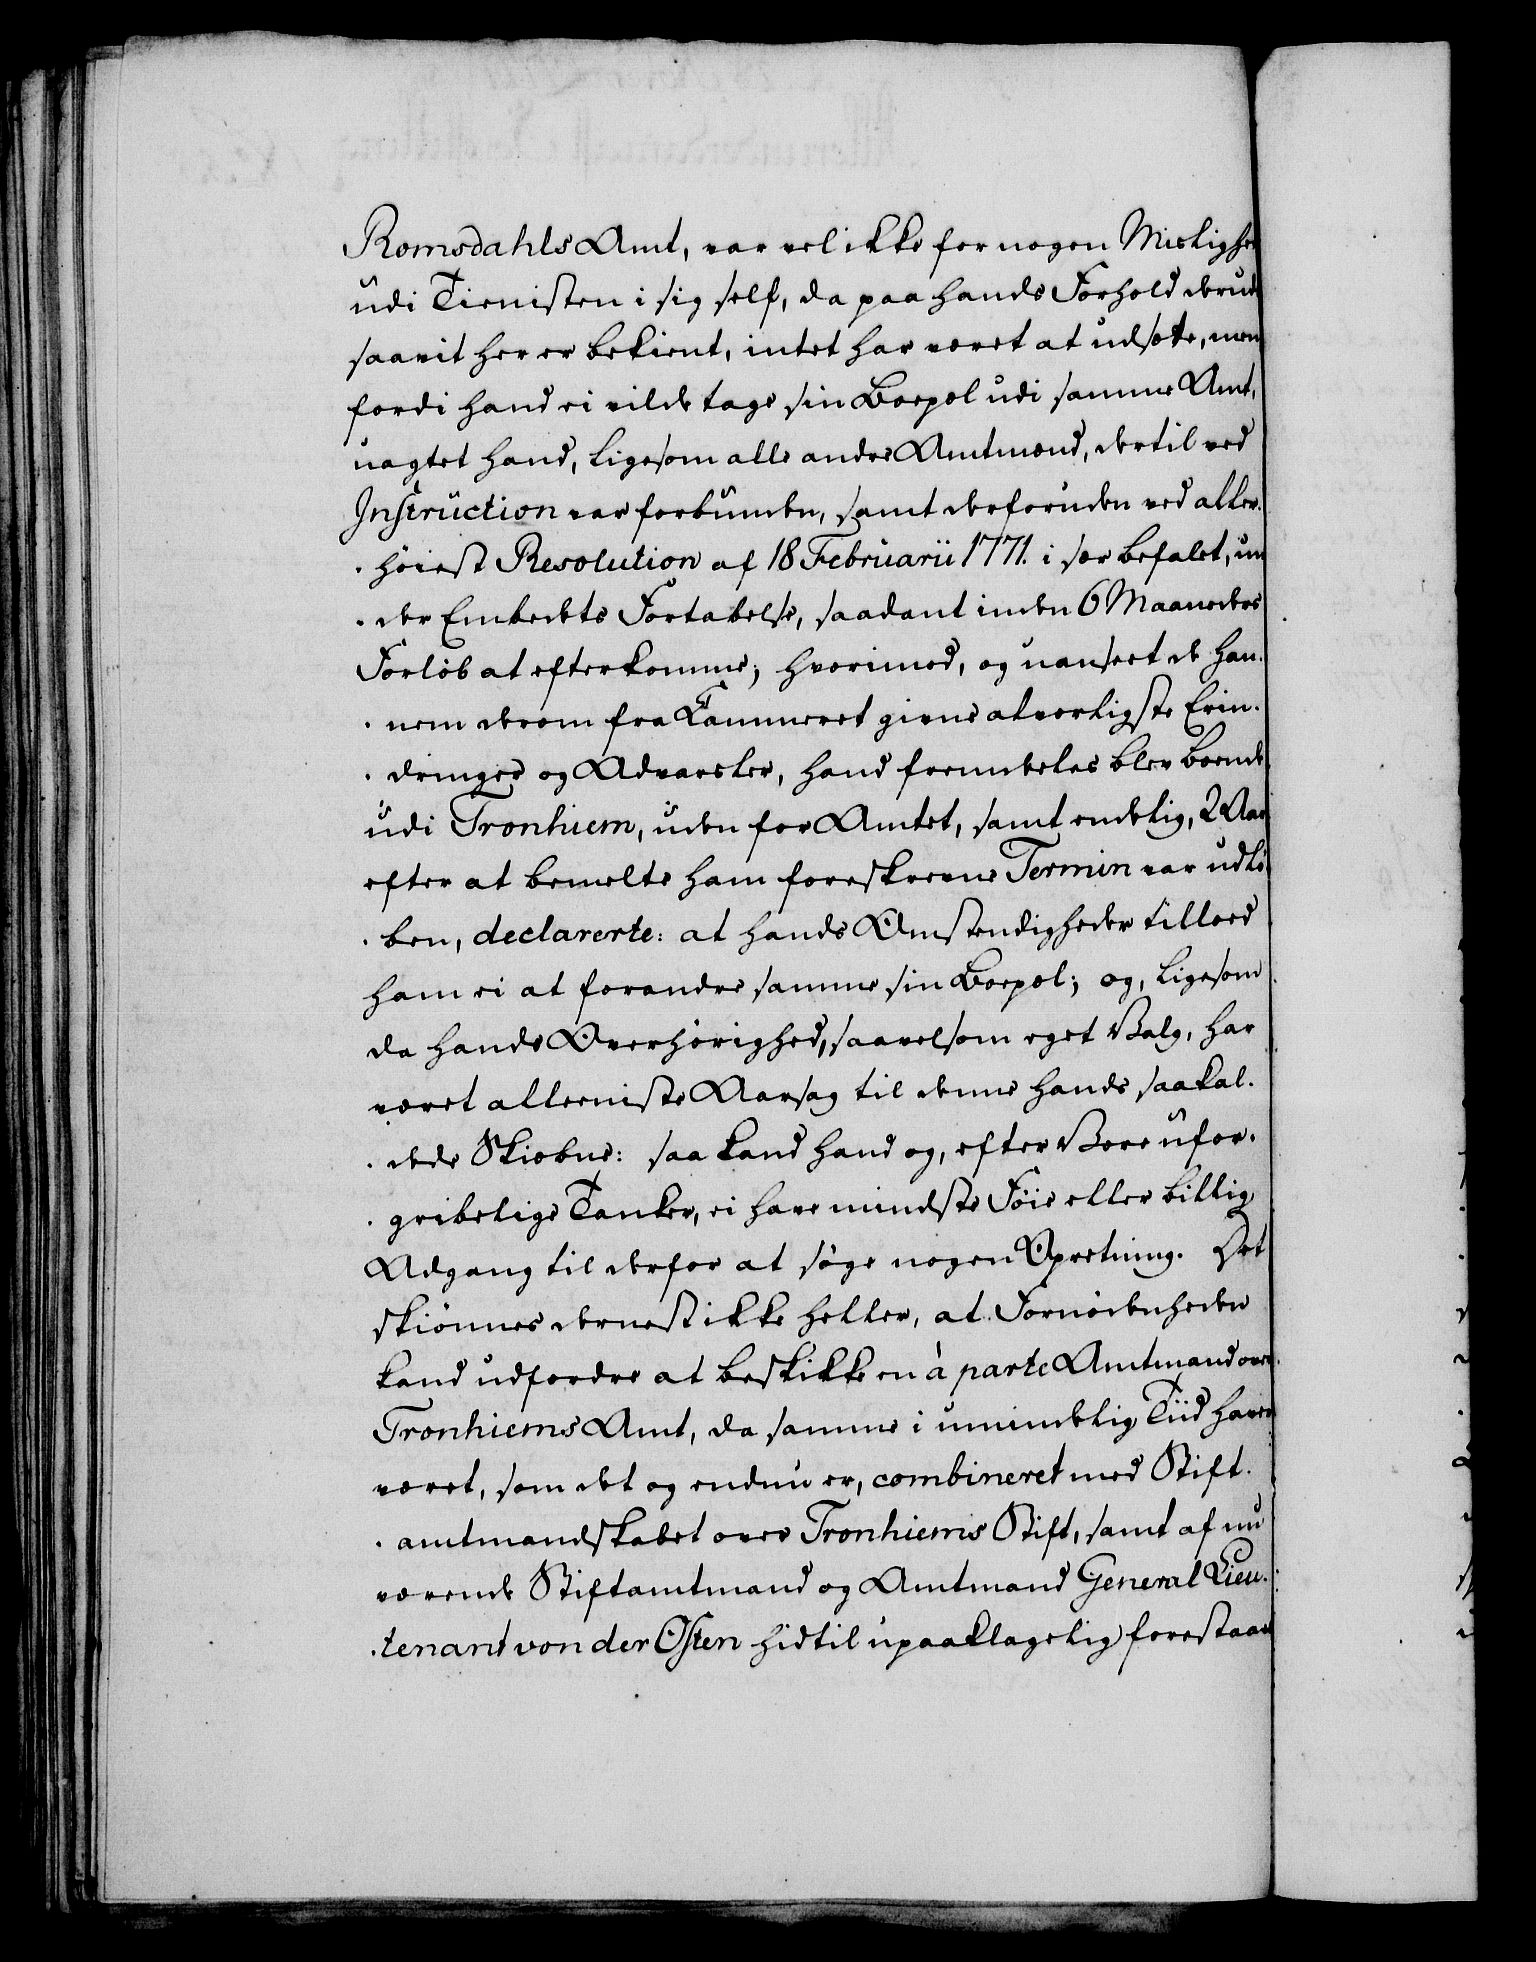 Romsdahls Amt, var vel ikke for nogen Mislighed
udi Tienisten i sig self, da paa hands Forhold derudi
saavit her er bekient, intet har været at udsætte, men
fordi hand ei vilde tage sin Boepæl udi samme Amt,
uagtet hand, ligesom alle andre Amtmænd, dertil ved
Instruction var forbunden, samt desforuden ved aller-
-høiest Resolution af 18 Februarii 1771. i sær befalet, un
-der Embedets Fortabelse, saadant inden 6 Maaneders
Forløb at efterkomme; hvorimod, og uanseet de han-
-nem derom fra Kammeret givne alvorligste Erin-
-dringer og Advarsler, hand fremdeles blev boende
udi Tronhiem, uden for Amtet, samt endelig, 2 Aar
efter at bemelte ham foreskrevne Termin var udlø-
-ben, declarerte: at hands Omstendigheder tilloed
ham ei at forandre samme sin Boepæl; og, ligesom
da hands Overhørighed, saavelsom eget Valg, har
været alleeniste Aarsag til denne hands saakal-
-dede Skiæbne: saa kand hand og, efter Vore ufor-
-gribelige Tanker, ei have mindste Føie eller billig
Adgang til derfor at søge nogen Opretning. Det
skiønnes dernest ikke heller, at Fornødenheden
kand udfordre at beskikke en à parte Amtmand over
Tronhiems Amt, da samme i umindelig Tiid haver
været, som det og endnu er, combineret med Stift-
-amtmandskabet over Tronhiems Stift, samt af nu
værende Stiftamtmand og Amtmand General Lieu-
-tenant von der Osten hidtil upaaklagelig forestaaet